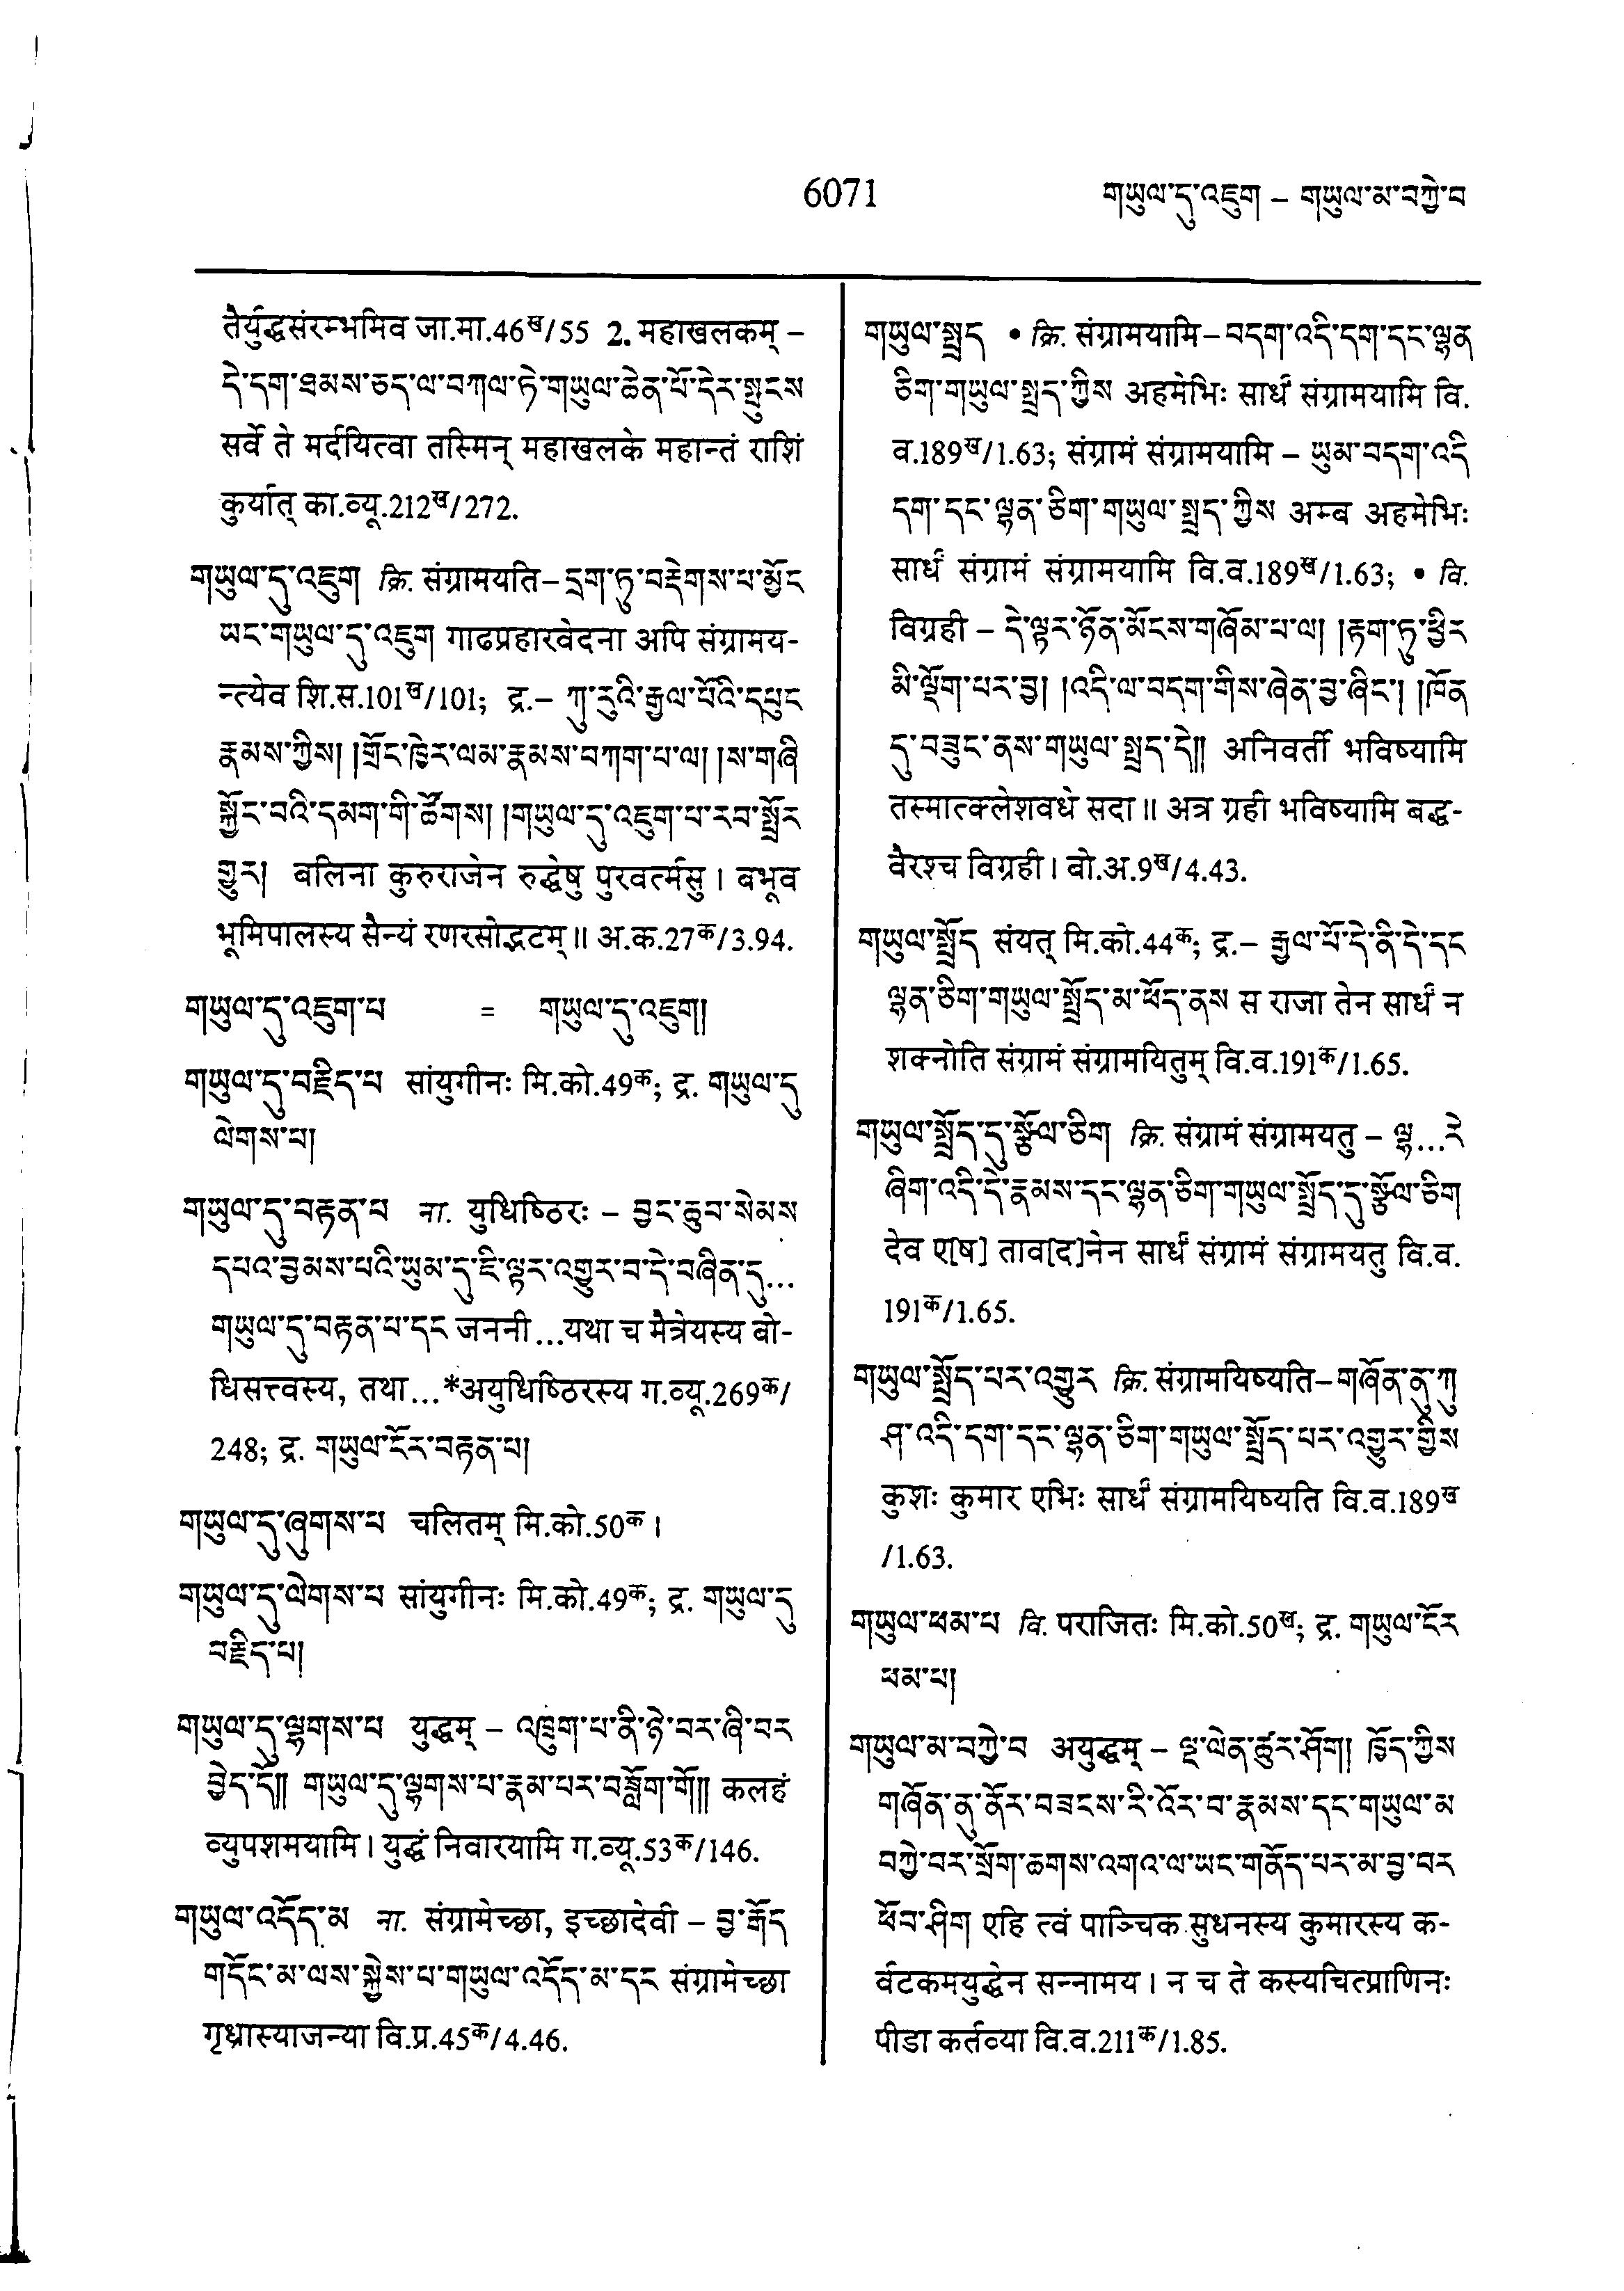 6071
གཡུལ་དུ་འཇུག – གཡུལ་མ་བཀྱེ་བ
तैर्युद्धसंरम्भमिव जा.मा.46ख/55 2. महाखलकम् –
དེ་དག་ཐམས་ཅད་ལ་བཀལ་ཏེ་གཡུལ་ཆེན་པོ་དེར་སྤུངས
सर्वे ते मर्दयित्वा तस्मिन् महाखलके महान्तं राशिं
कुर्यात् का.व्यू.212ख/272.
གཡུལ་དུ་འཇུག क्रि. संग्रामयति – དྲག་ཏུ་བརྡེགས་པ་མྱོང
ཡང་གཡུལ་དུ་འཇུག गाढप्रहारवेदना अपि संग्रामय-
न्त्येव शि.स.101ख/101; द्र.– ཀུ་རུའི་རྒྱལ་པོའི་དཔུང
རྣམས་ཀྱིས། །གྲོང་ཁྱེར་ལམ་རྣམས་བཀག་པ་ལ། །ས་གཞི
སྐྱོང་བའི་དམག་གི་ཚོགས། །གཡུལ་དུ་འཇུག་པ་རབ་སྦྱོར
གྱུར། बलिना कुरुराजेन रुद्धेषु पुरवर्त्मसु । बभूव
भूमिपालस्य सैन्यं रणरसोद्भटम् ॥ अ.क.27क/3.94.
གཡུལ་དུ་འཇུག་པ = གཡུལ་དུ་འཇུག།
གཡུལ་དུ་བརྗིད་པ सांयुगीनः मि.को.49क; द्र. གཡུལ་དུ
ལེགས་པ།
གཡུལ་དུ་བརྟན་པ ना. युधिष्ठिरः – བྱང་ཆུབ་སེམས
དཔའ་བྱམས་པའི་ཡུམ་དུ་ཇི་ལྟར་འགྱུར་བ་དེ་བཞིན་དུ...
གཡུལ་དུ་བརྟན་པ་དང जननी ...यथा च मैत्रेयस्य बो-
धिसत्त्वस्य, तथा...*अयुधिष्ठिरस्य ग.व्यू.269क/
248; द्र. གཡུལ་ངོར་བརྟན་པ།
གཡུལ་དུ་ཞུགས་པ चलितम् मि.को.50क ।
གཡུལ་དུ་ལེགས་པ सांयुगीनः मि.को.49क; द्र. གཡུལ་དུ
བརྗིད་པ།
གཡུལ་དུ་ལྷགས་པ युद्धम् – འཁྲུག་པ་ནི་ཉེ་བར་ཞི་བར
བྱེད་དོ༎ གཡུལ་དུ་ལྷགས་པ་རྣམ་པར་བཟློག་གོ༎ कलहं
व्युपशमयामि । युद्धं निवारयामि ग.व्यू.53क/146.
གཡུལ་འདོད་མ ना. संग्रामेच्छा, इच्छादेवी – བྱ་རྒོད
གདོང་མ་ལས་སྐྱེས་པ་གཡུལ་འདོད་མ་དང संग्रामेच्छा
गृध्रास्याजन्या वि.प्र.45क/4.46.
གཡུལ་སྤྲད • क्रि. संग्रामयामि – བདག་འདི་དག་དང་ལྷན
ཅིག་གཡུལ་སྤྲད་ཀྱིས अहमेभिः सार्धं संग्रामयामि वि.
व.189ख/1.63; संग्रामं संग्रामयामि – ཡུམ་བདག་འདི
དག་དང་ལྷན་ཅིག་གཡུལ་སྤྲད་ཀྱིས अम्ब अहमेभिः
सार्धं संग्रामं संग्रामयामि वि.व.189ख/1.63; • वि.
विग्रही – དེ་ལྟར་ཉོན་མོངས་གཞོམ་པ་ལ། །རྟག་ཏུ་ཕྱིར
མི་ལྡོག་པར་བྱ། །འདི་ལ་བདག་གིས་ཞེན་བྱ་ཞིང་། །ཁོན
དུ་བཟུང་ནས་གཡུལ་སྤྲད་དེ༎ अनिवर्ती भविष्यामि
तस्मात्क्लेशवधे सदा ॥ अत्र ग्रही भविष्यामि बद्ध-
वैरश्च विग्रही । बो.अ.9ख/4.43.
གཡུལ་སྤྲོད संयत् मि.को.44क; द्र.– རྒྱལ་པོ་དེ་ནི་དེ་དང
ལྷན་ཅིག་གཡུལ་སྤྲོད་མ་ཕོད་ནས स राजा तेन सार्धं न
शक्नोति संग्रामं संग्रामयितुम् वि.व.191क/1.65.
གཡུལ་སྤྲོད་དུ་སྩོལ་ཅིག क्रि. संग्रामं संग्रामयतु – ལྷ...རེ
ཞིག་འདི་དེ་རྣམས་དང་ལྷན་ཅིག་གཡུལ་སྤྲོད་དུ་སྩོལ་ཅིག
देव ए[ष] ताव[द]नेन सार्धं संग्रामं संग्रामयतु वि.व.
191क/1.65.
གཡུལ་སྤྲོད་པར་འགྱུར क्रि. संग्रामयिष्यति – གཞོན་ནུ་ཀུ
ཤ་འདི་དག་དང་ལྷན་ཅིག་གཡུལ་སྤྲོད་པར་འགྱུར་གྱིས
कुशः कुमार एभिः सार्धं संग्रामयिष्यति वि.व.189ख
/1.63.
གཡུལ་ཕམ་པ वि. पराजितः मि.को.50ख; द्र. གཡུལ་ངོར
ཕམ་པ།
གཡུལ་མ་བཀྱེ་བ अयुद्धम् – ལྔ་ལེན་ཚུར་ཤོག། ཁྱོད་ཀྱིས
གཞོན་ནུ་ནོར་བཟངས་རི་འོར་བ་རྣམས་དང་གཡུལ་མ
བཀྱེ་བར་སྲོག་ཆགས་འགའ་ལ་ཡང་གནོད་པར་མ་བྱ་བར
ཕོབ་ཤིག एहि त्वं पाञ्चिक सुधनस्य कुमारस्य क-
र्वटकमयुद्धेन सन्नामय । न च ते कस्यचित्प्राणिनः
पीडा कर्तव्या वि.व.211क/1.85.